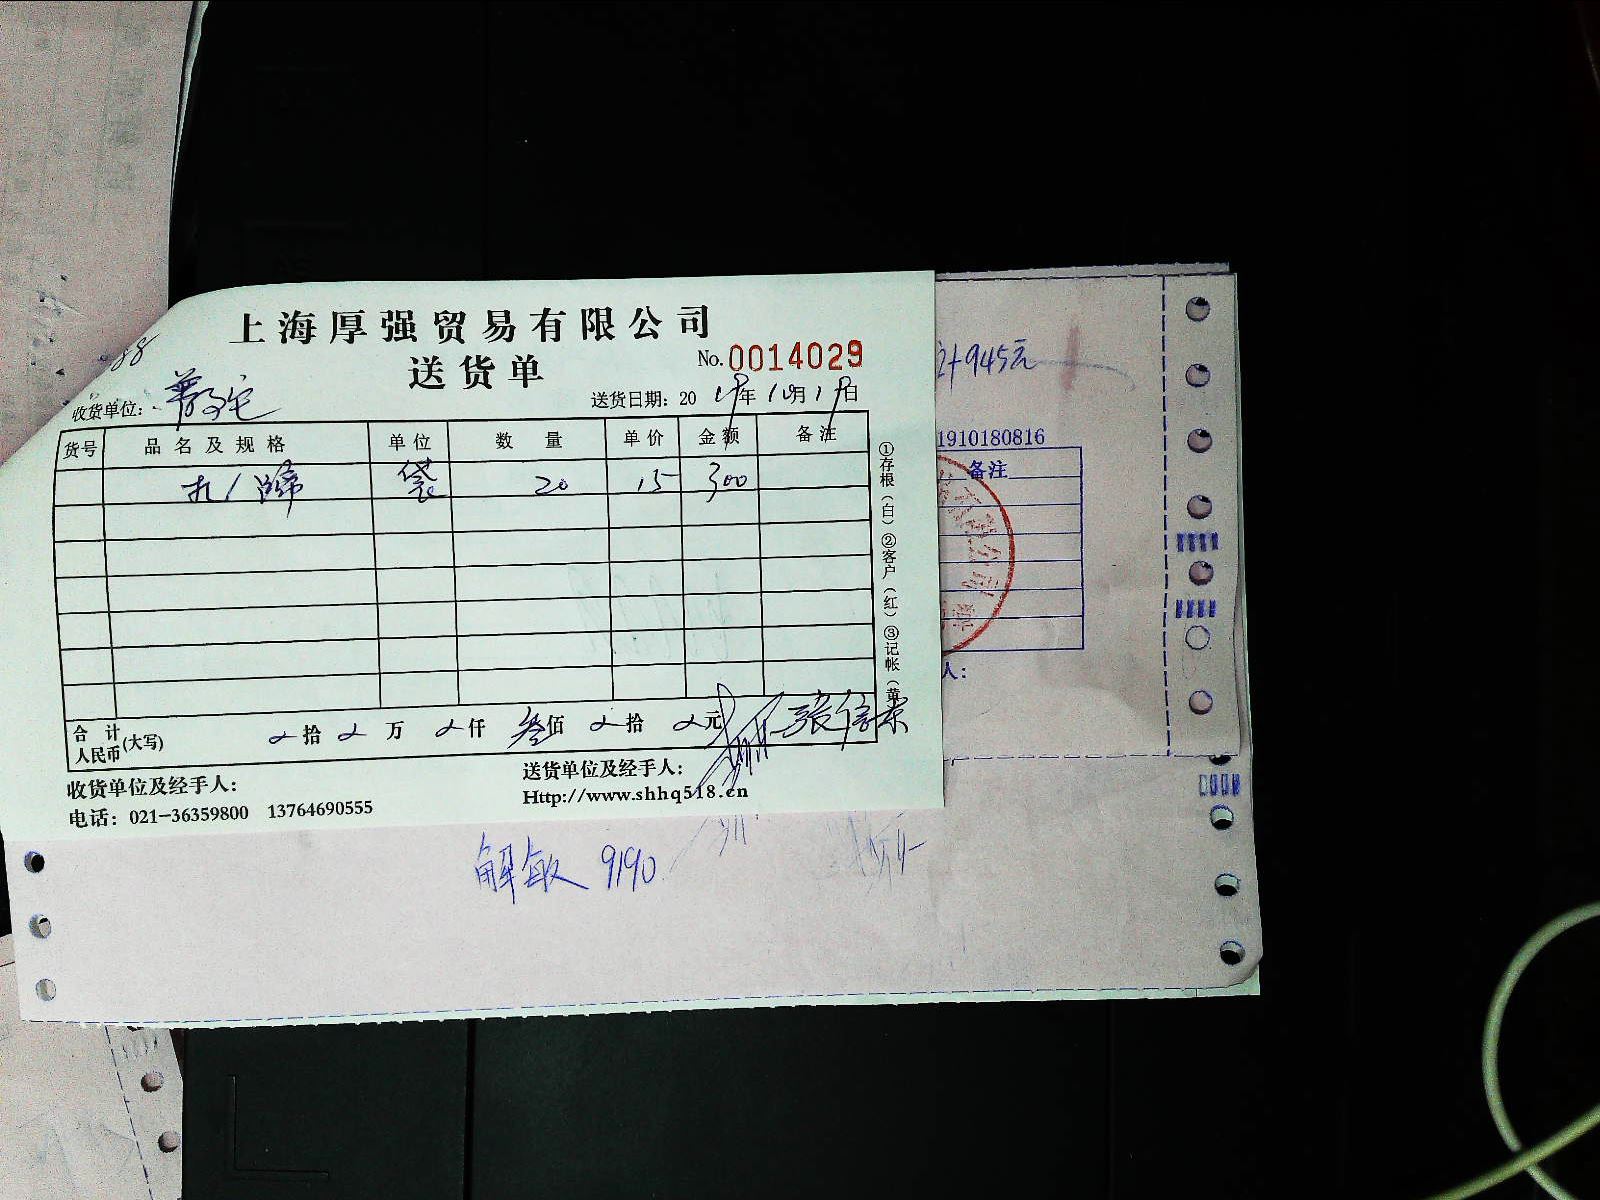 上海厚强贸易有限公司
送货单
No. 0014029
88
收货单位：
送货日期：2019年10月19日
货号 品名及规格 单位 数量 单价 金额 备注
袋 20 15 300
合计人民币(大写) 拾 万 仟 叁佰 拾 元
①存根(白)②客户(红)③记帐(黄
收货单位及经手人：
送货单位及经手人：
电话：021-36359800 13764690555
Http://www.shhq518.cn
945元
1910180816
备注
公司
人：
解敏 9190